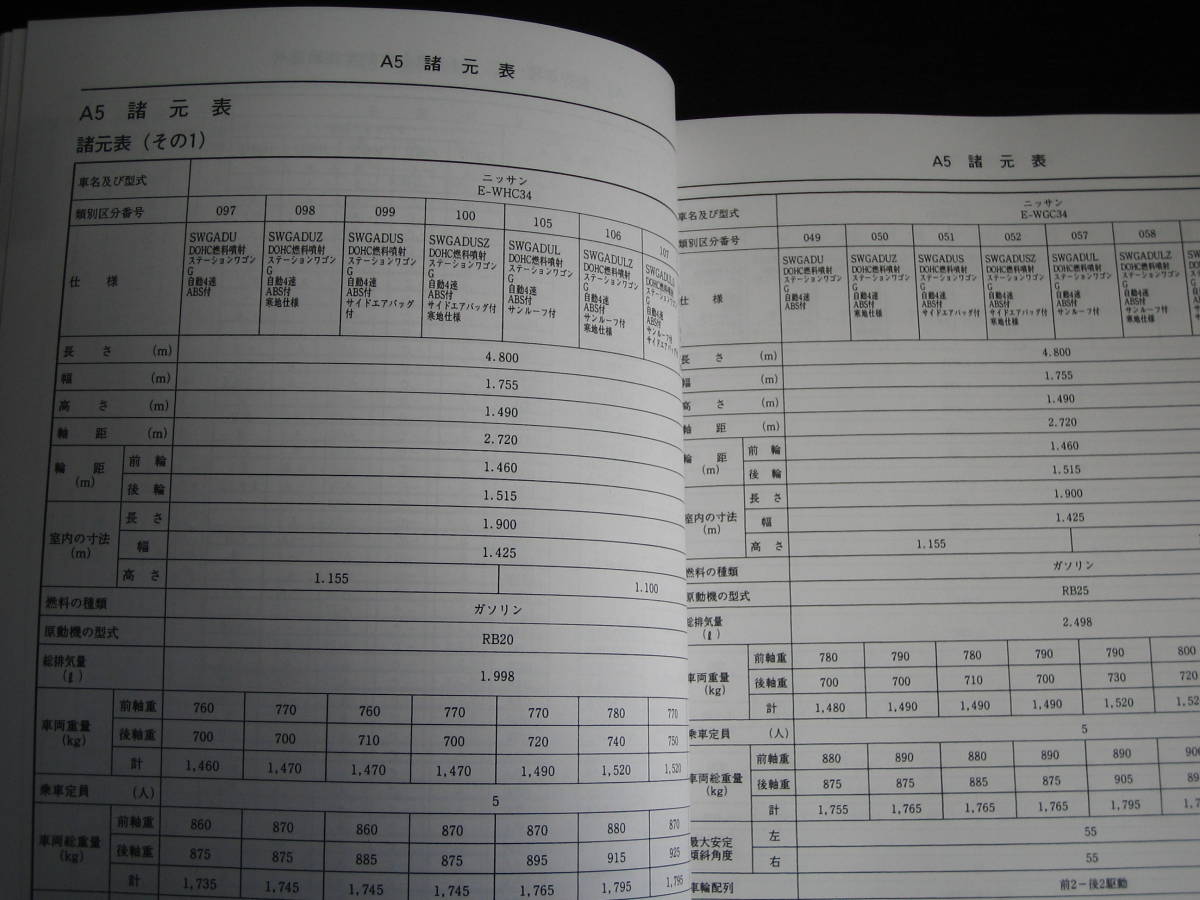 A5 諸 元 表
A5 諸 元 表
諸元表 (その1)
車名及び型式
ニッサン
E-WHC34
類別区分番号 097 098 099 100 105 106 107
仕 様
SWGADU
DOHC燃料噴射
ステーションワゴン
G
自動4速
ABS付
SWGADUZ
DOHC燃料噴射
ステーションワゴン
G
自動4速
ABS付
寒地仕様
SWGADUS
DOHC燃料噴射
ステーションワゴン
G
自動4速
ABS付
サイドエアバッグ
付
SWGADUSZ
DOHC燃料噴射
ステーションワゴン
G
自動4速
ABS付
サイドエアバッグ付
寒地仕様
SWGADUL
DOHC燃料噴射
ステーションワゴン
G
自動4速
ABS付
サンルーフ付
SWGADULZ
DOHC燃料噴射
ステーションワゴン
G
自動4速
ABS付
サンルーフ付
寒地仕様
DOHC燃料噴射
ステーションワゴン
G
自動4速
ABS付
サンルーフ付
長 さ (m) 4.800
幅 (m) 1.755
高 さ (m) 1.490
軸 距 (m) 2.720
輪 距
(m)
前 輪 1.460
後 輪 1.515
室内の寸法
(m)
長 さ 1.900
幅 1.425
高 さ 1.155 1.100
燃料の種類 ガソリン
原動機の型式 RB20
総排気量
(ℓ)
1.998
車両重量
(kg)
前軸重 760 770 760 770 770 780 770
後軸重 700 700 710 700 720 740 750
計 1,460 1,470 1,470 1,470 1,490 1,520 1,520
乗車定員 (人) 5
車両総重量
(kg)
前軸重 860 870 860 870 870 880 870
後軸重 875 875 885 875 895 915 925
計 1,735 1,745 1,745 1,745 1,765 1,795 1,795
A5 諸 元 表
車名及び型式
ニッサン
E-WGC34
類別区分番号 049 050 051 052 057 058
仕 様
SWGADU
DOHC燃料噴射
ステーションワゴン
G
自動4速
ABS付
SWGADUZ
DOHC燃料噴射
ステーションワゴン
G
自動4速
ABS付
寒地仕様
SWGADUS
DOHC燃料噴射
ステーションワゴン
G
自動4速
ABS付
サイドエアバッグ付
SWGADUSZ
DOHC燃料噴射
ステーションワゴン
G
自動4速
ABS付
サイドエアバッグ付
寒地仕様
SWGADUL
DOHC燃料噴射
ステーションワゴン
G
自動4速
ABS付
サンルーフ付
SWGADULZ
DOHC燃料噴射
ステーションワゴン
G
自動4速
ABS付
サンルーフ付
寒地仕様
長 さ (m) 4.800
幅 (m) 1.755
高 さ (m) 1.490
軸 距 (m) 2.720
輪 距
(m)
前 輪 1.460
後 輪 1.515
室内の寸法
(m)
長 さ 1.900
幅 1.425
高 さ 1.155
燃料の種類 ガソリン
原動機の型式 RB25
総排気量
(ℓ)
2.498
車両重量
(kg)
前軸重 780 790 780 790 790 800
後軸重 700 700 710 700 730 720
計 1,480 1,490 1,490 1,490 1,520
乗車定員 (人) 5
車両総重量
(kg)
前軸重 880 890 880 890 890
後軸重 875 875 885 875 905
計 1,755 1,765 1,765 1,765 1,795
最大安定
傾斜角度
左 55
右 55
車輪配列 前2-後2駆動